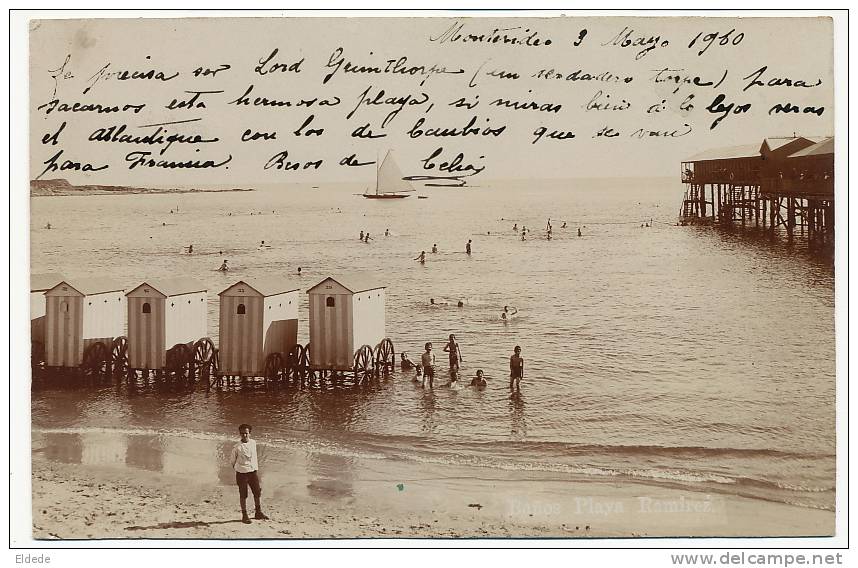 Montevideo 3 Mayo 1900
Se precisa ser Lord Grimthorpe (un verdadero torpe) para
sacarnos esta hermosa playa, si miras bien á lo lejos veras
el Atlantique con los de Caubios que se van
para Francia. Besos de Celia
Baños Playa Ramirez.
Eldede
http://www.delcampe.net